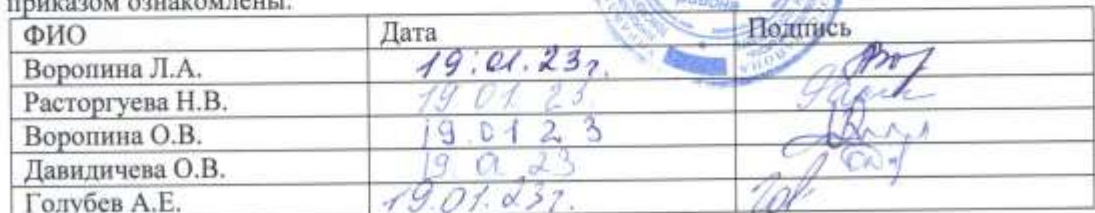 приказом ознакомлены:
ФИО Дата Подпись
Воропина Л.А. 19.01.23г
Расторгуева Н.В. 19 01 23
Воропина О.В. 19.01 23
Давидичева О.В. 19 01 23
Голубев А.Е. 19.01.23г.
района